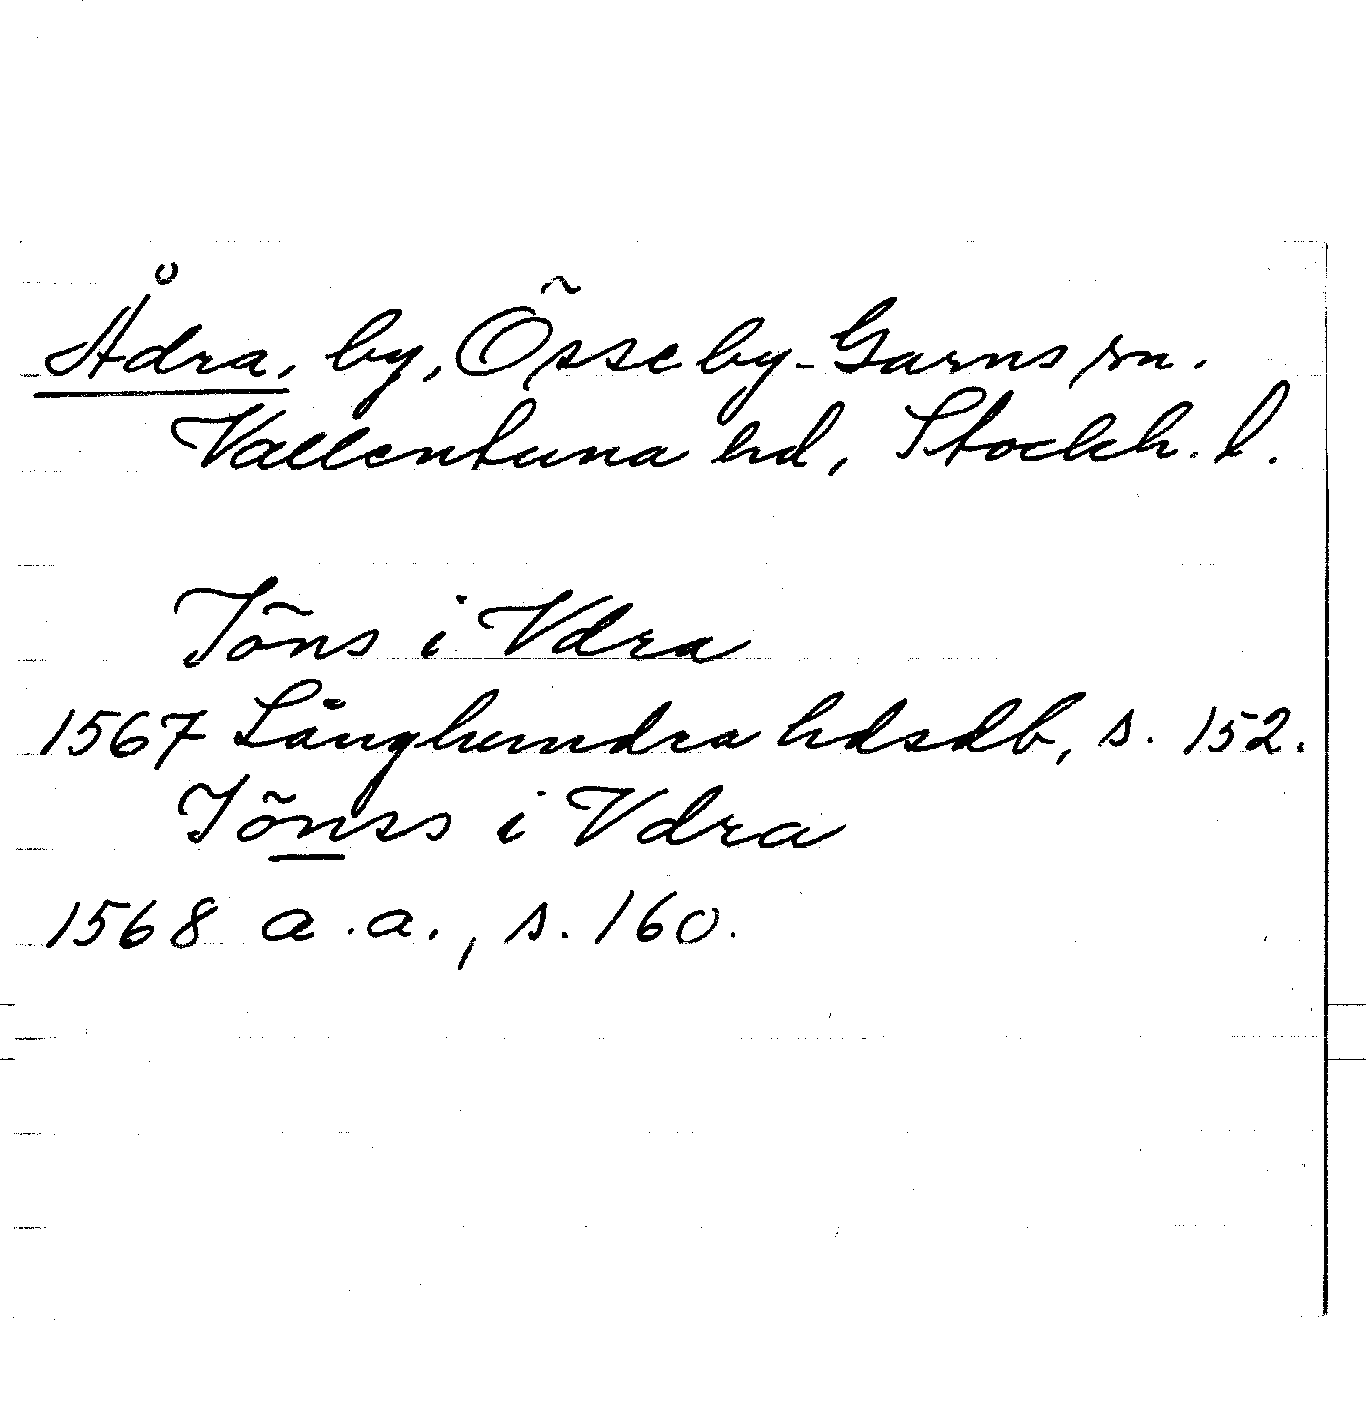 Ådra, by, Össeby-Garns sn.
Vallentuna hd, Stockh. l.
Jöns i Vdra
1567 Långhundra hdsdb, s. 152.
Jönss i Vdra
1568 a.a., s. 160.